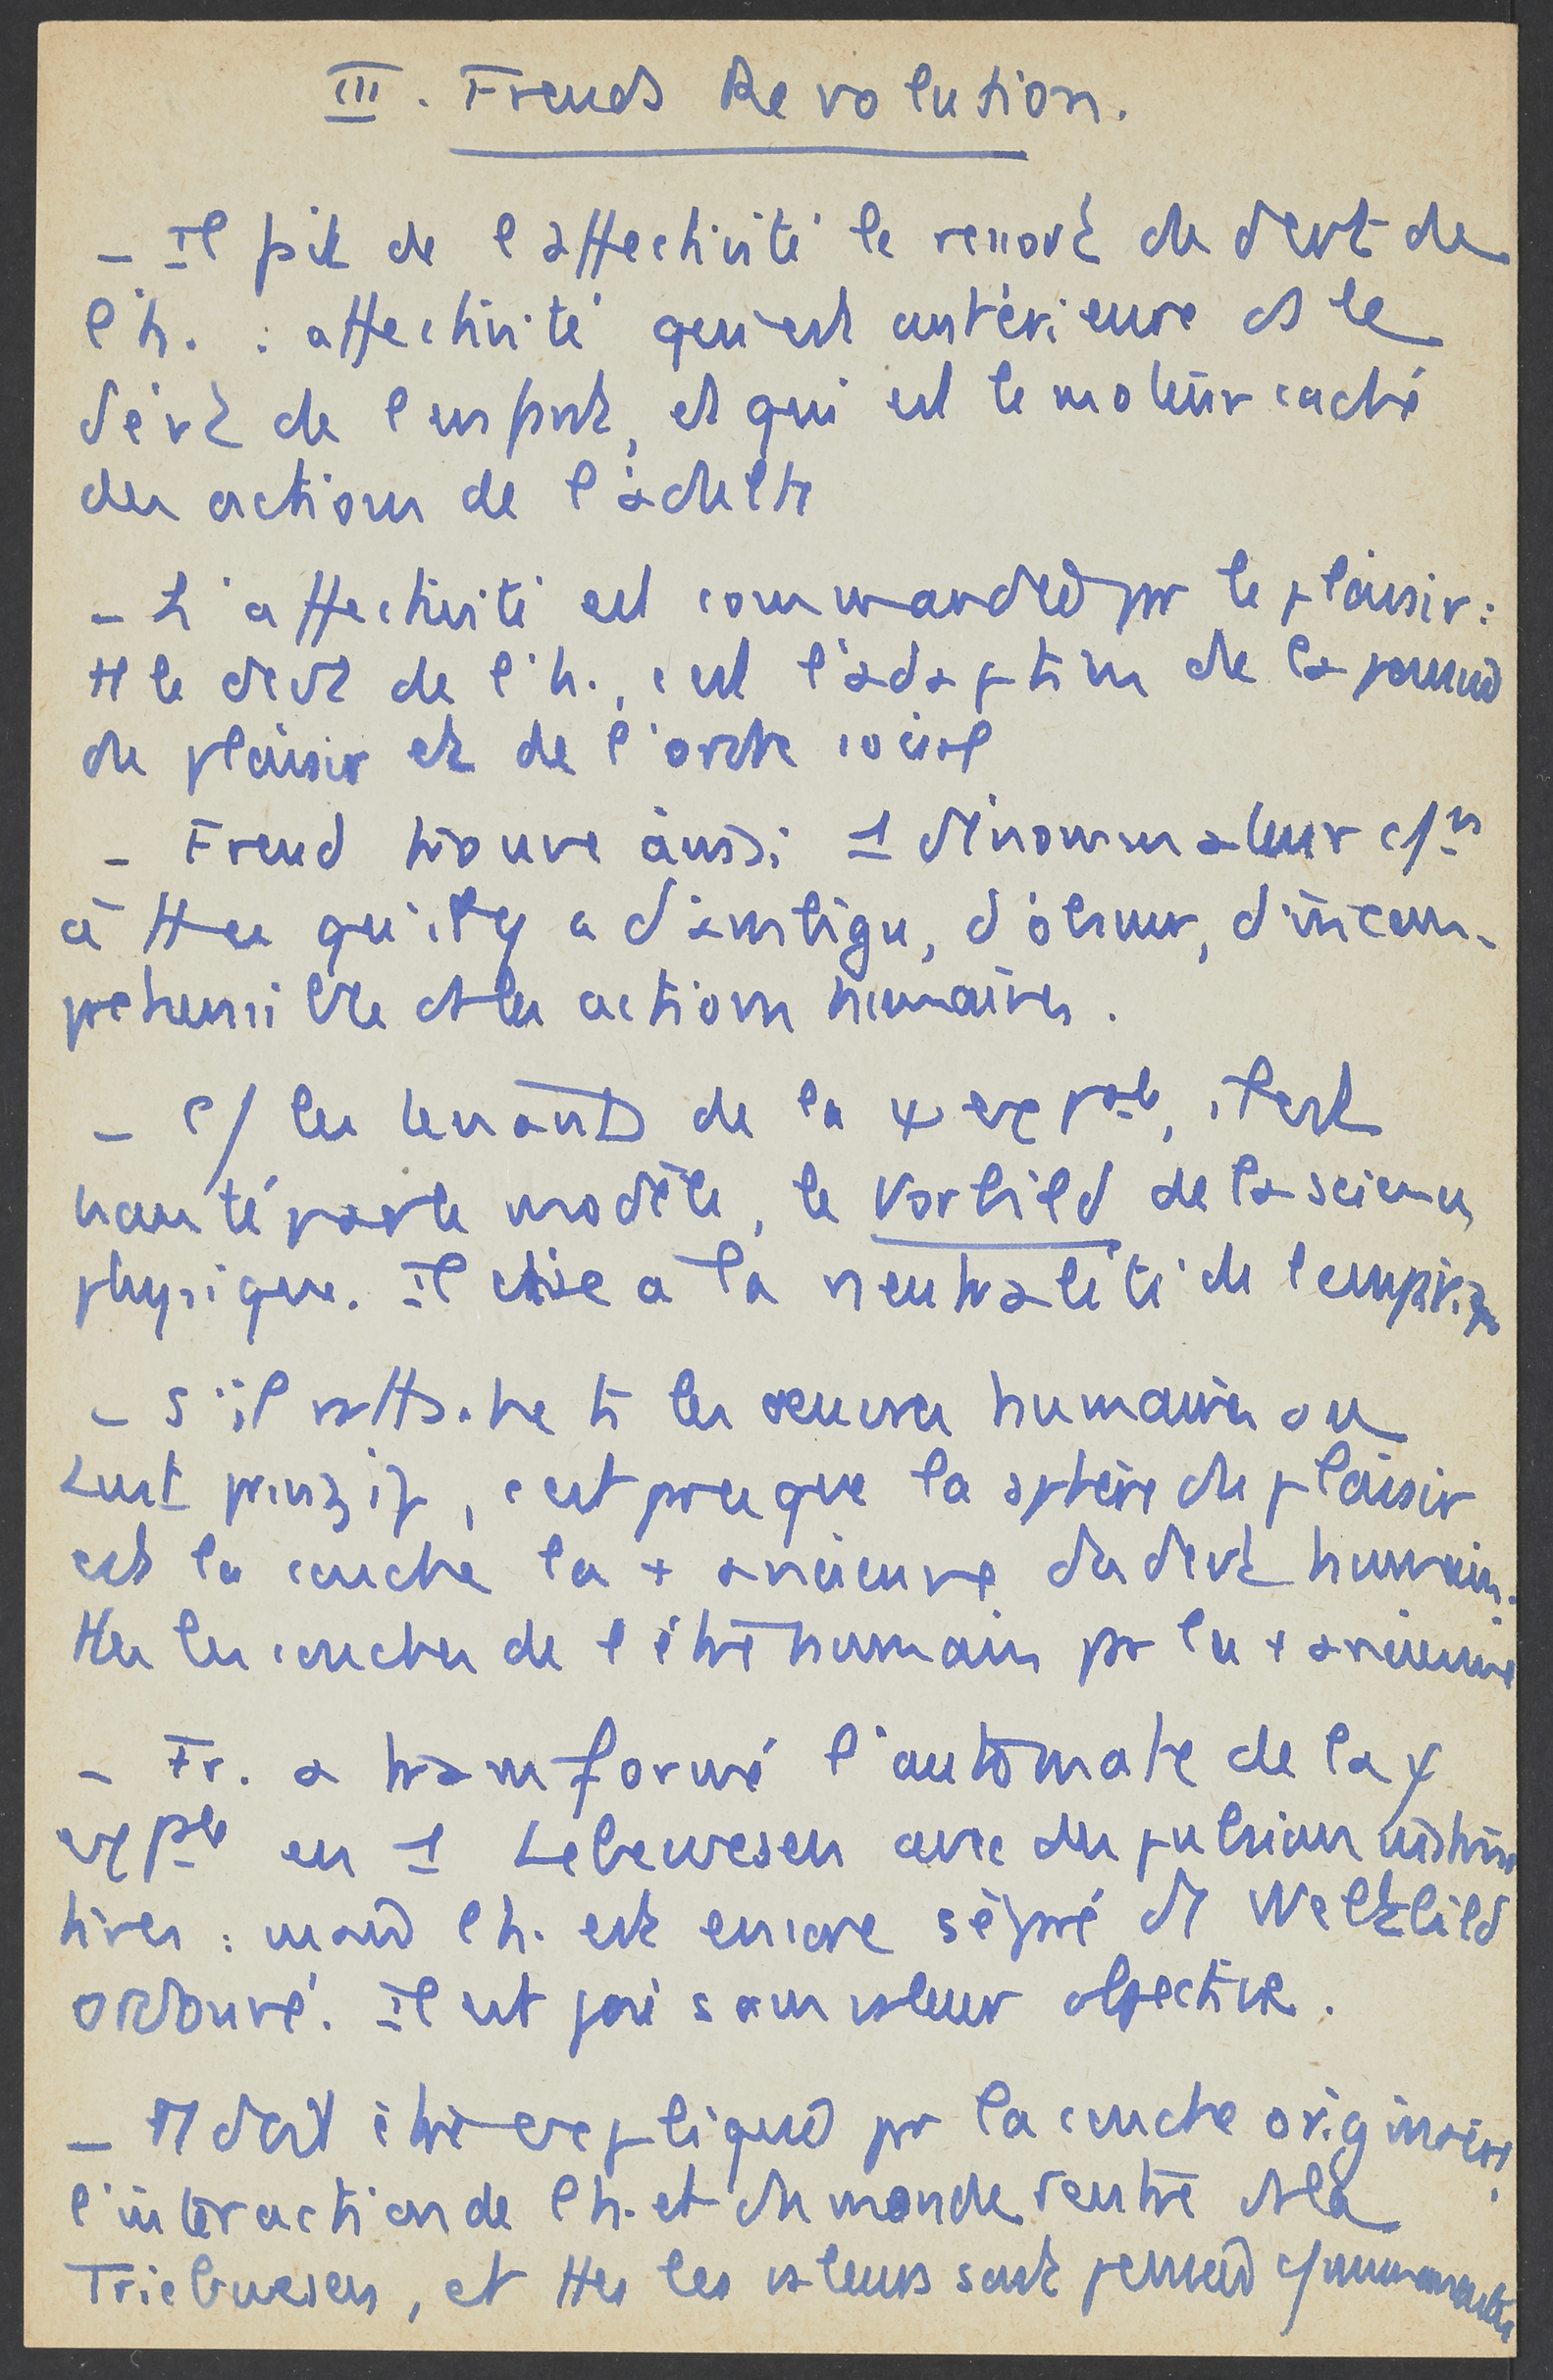 III. Freuds Revolution.
- Il fit de l'affectivité le ressort du devt de
l'h. : affectivité qui est antérieure ds le
dévt de l'enfant, et qui est le moteur caché
des actions de l'adulte
- L'affectivité est commandée par le plaisir :
tt le devt de l'h., c'est l'adaptation de la
du plaisir et de l'ordre social
- Freud trouve aussi 1 dénominateur c/n
à tt ce qu'il y a d'ambigu, d'obscur, d'incom-
préhensible ds les actions humaines.
- C/ les tenants de la ψ exple, il est
hanté par le modèle, le Vorbild de la science
physique. Il vise a la neutralité de l'empirie
- S'il rattache tt les oeuvres humaines au
Lustprinzip, c'est pceque la sphère du plaisir
est la couche la + ancienne du devt humain.
Ttes les couches de l'être humain par la + ancienne
- Fr. a transformé l'automate de la ψ
exple en 1 Lebewesen avec des pulsions instinc
tives : mais l'h. est encore séparé du Weltbild
ordonné. Il est posé sans valeur objective.
- Tt doit être expliqué par la couche originaire,
l'interaction de l'h. et du monde rentre ds la
Triebwesen, et ttes les valeurs sont pensées c/ immanentes